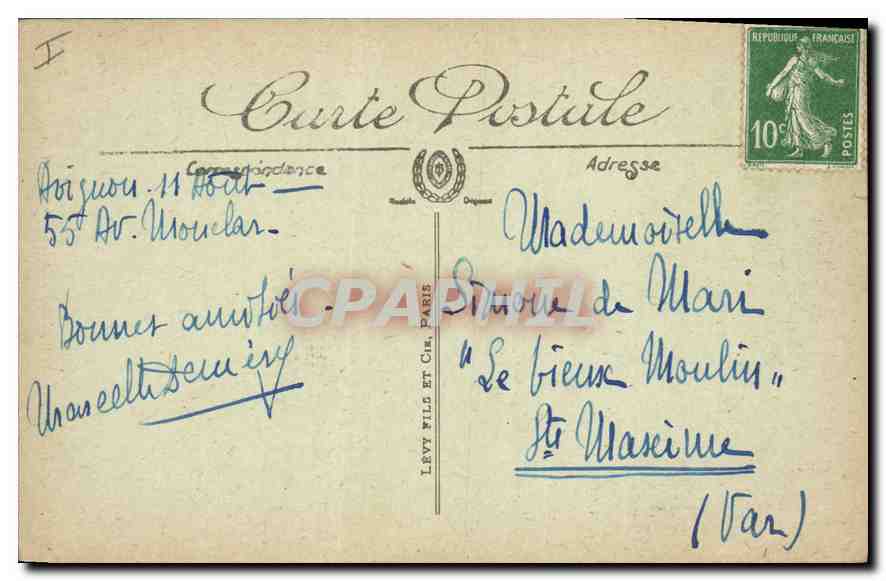 I
Carte Postale
REPUBLIQUE FRANÇAISE
10c
POSTES
Correspondance
Adresse
Modèle Déposé
Avignon. 11 Août
55 Av. Monclar.
Bonnes amitiés.
Marcelle
Mademoiselle
Simone de Mari
"Le vieux Moulin"
Ste Maxime
(Var)
LÉVY FILS ET CIE, PARIS
CPAPHIL